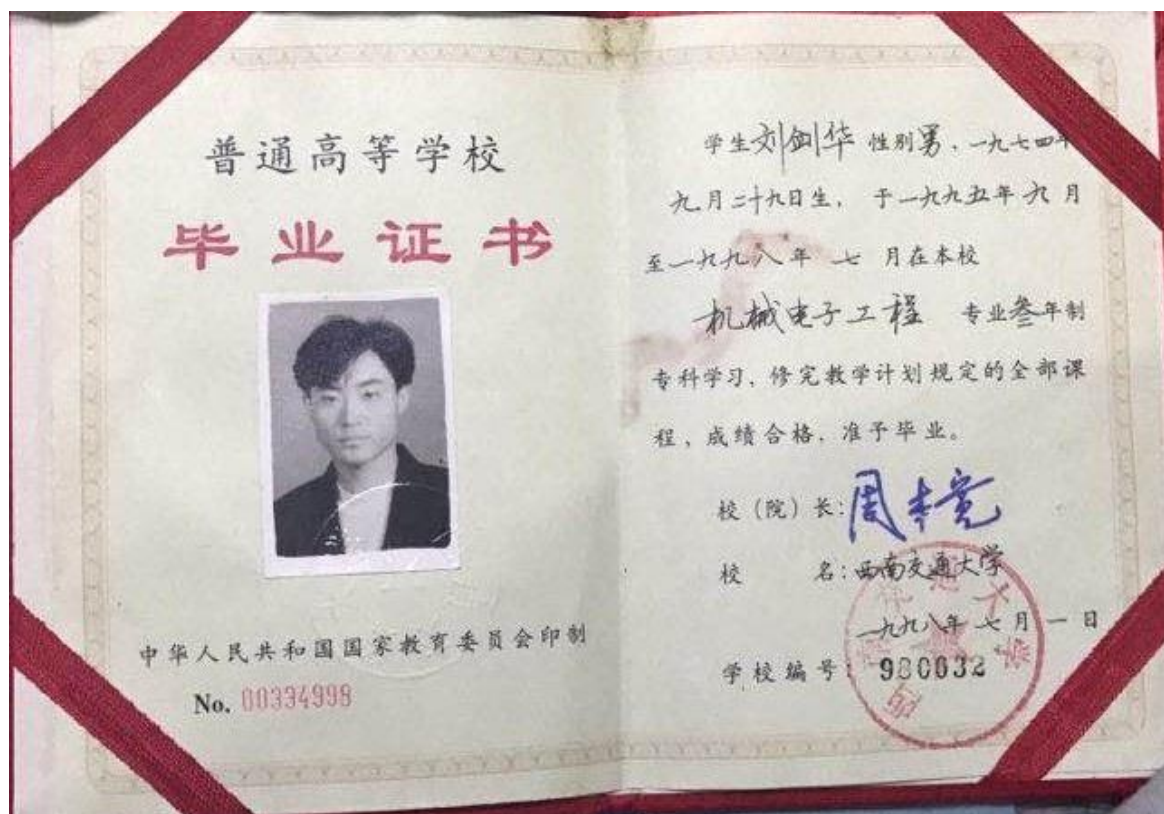 普通高等学校
毕业证书
中华人民共和国国家教育委员会印制
No. 00334998
学生刘剑华 性别男，一九七四年
九月二十九日生，于一九九五年九月
至一九九八年 七 月在本校
机械电子工程 专业叁年制
专科学习，修完教学计划规定的全部课
程，成绩合格，准予毕业。
校（院）长：周本宽
校 名：西南交通大学
一九九八年七月一日
学校编号：980032